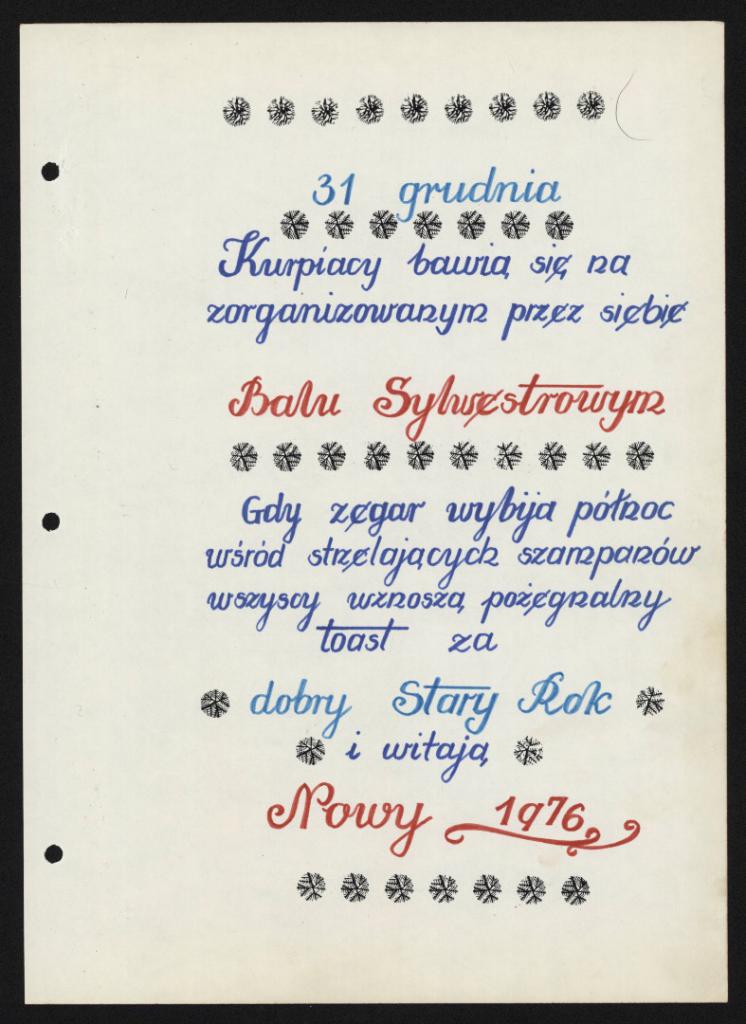 31 grudnia
Kurpiacy bawią się na
zorganizowanym przez siebie
Balu Sylwestrowym
Gdy zegar wybija północ
wśród strzelających szampanów
wszyscy wznoszą pożegnalny
toast za
dobry Stary Rok
i witają
Nowy 1976